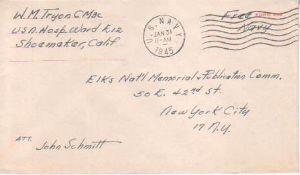 W.M. Tryon C.Mac
U.S.N. Hosp. Ward K12
Shoemaker, Calif
U.S. NAVY
JAN 31
11-AM
1945
Free
Navy
Elks Nat'l Memorial & Publication Comm.
50 E. 42nd st.
New York City
17 N.Y.
ATT.
John Schmitt